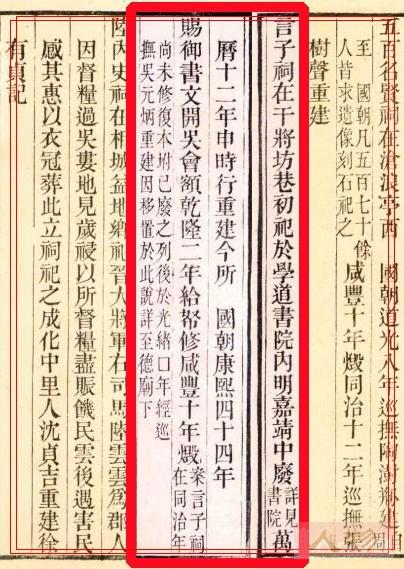 五百名賢祠在滄浪亭西 國朝道光八年 巡撫陶澍建自周
至 國朝凡五百七十餘
人皆求遺像刻石祀之
咸豐十年燬同治十二年巡撫張
樹聲重建
言子祠在干將坊巷初祀於學道書院內明嘉靖中廢詳見書院萬
曆十二年申時行重建今所 國朝康熙四十四年
賜御書文開吳會額乾隆二年給帑修咸豐十年燬案言子祠在同治年
尚未修復本坿已廢之列後於光緒口年經巡
撫吳元炳重建因移置於此說詳至德廟下
陸內史祠在相城益地鄉祀晉大將軍右司馬陸雲雲為郡人
因督糧過吳婁地見歲祲以所督糧盡賑饑民雲後遇害民
感其惠以衣冠葬此立祠祀之成化中里人沈貞吉重建徐
有貞記